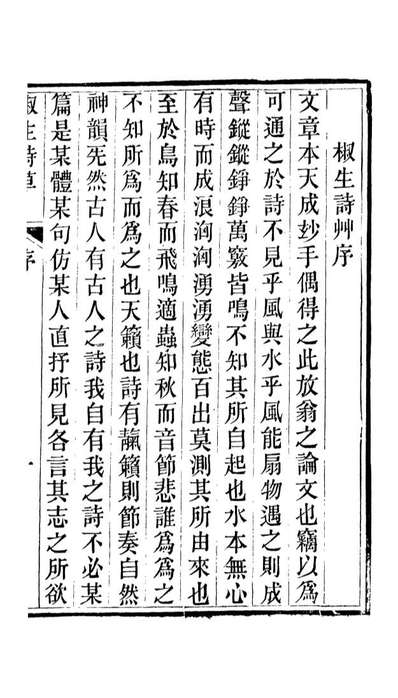 椒生詩艸序
文章本天成玅手偶得之此放翁之論文也竊以爲
可通之於詩不見乎風與水乎風能扇物遇之則成
聲鏦鏦錚錚萬竅皆鳴不知其所自起也水本無心
有時而成浪洶洶湧湧變態百出莫測其所由來也
至於鳥知春而飛鳴適蟲知秋而音節悲誰爲爲之
不知所爲而爲之也天籟也詩有籟則節奏自然
神韻旡然古人有古人之詩我自有我之詩不必某
篇是某體某句仿某人直抒所見各言其志之所欲
椒生詩草
序
一